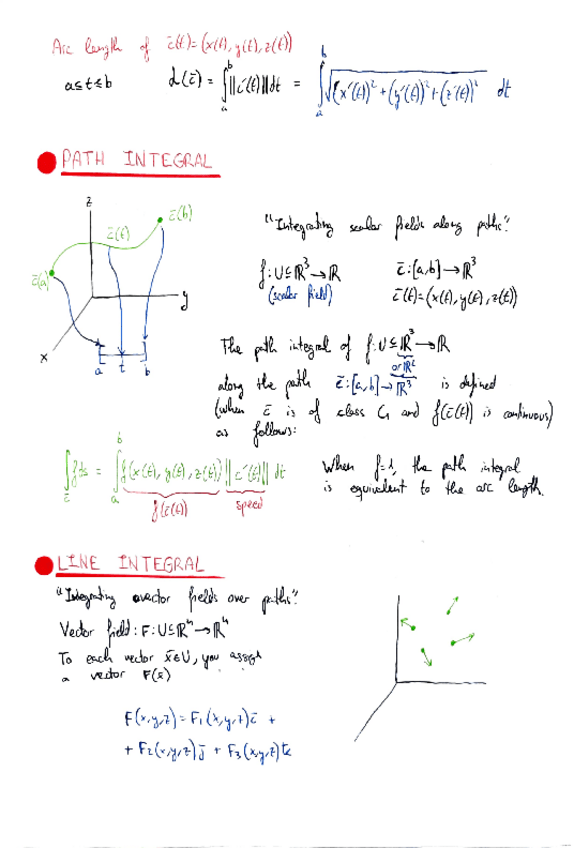 Arc length of c̄(t)=(x(t), y(t), z(t))
a≤t≤b L(c̄) = ∫ₐᵇ ||c̄'(t)||dt = ∫ₐᵇ √((x'(t))²+(y'(t))²+(z'(t))²) dt
PATH INTEGRAL
z
c̄(b)
c̄(t)
c̄(a)
y
x
a t b
"Integrating scalar fields along paths".
f: U⊆ℝ³→ℝ c̄:[a,b]→ℝ³
(scalar field) c̄(t)=(x(t), y(t), z(t))
The path integral of f: U⊆ℝ³→ℝ
or ℝ²
along the path c̄:[a,b]→ℝ³ is defined
(when c̄ is of class C₁ and f(c̄(t)) is continuous)
as follows:
∫_c̄ f ds = ∫ₐᵇ f(x(t), y(t), z(t)) ||c̄'(t)|| dt
f(c̄(t)) speed
When f=1, the path integral
is equivalent to the arc length.
LINE INTEGRAL
"Integrating vector fields over paths".
Vector field: F: U⊆ℝⁿ→ℝⁿ
To each vector x̄∈U, you assign
a vector F(x̄)
F(x,y,z)=F₁(x,y,z)ī +
+ F₂(x,y,z)j̄ + F₃(x,y,z)k̄